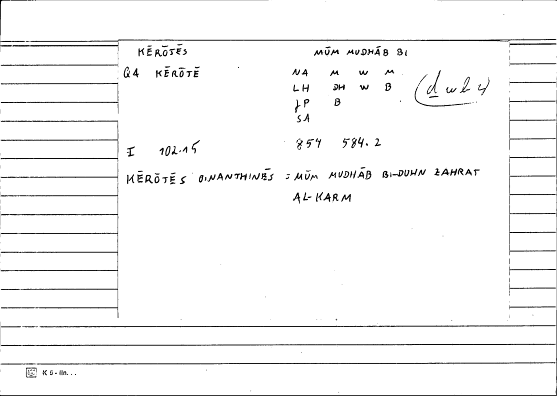 KĒRŌTĒS MŪM MUDHĀB BI
Q4 KĒRŌTĒ NA M W M
LH DH W B (dwb 4)
JP B
SA
I 102.15 854 584.2
KĒRŌTĒS OINANTHINĒS = MŪM MUDHĀB BI-DUHN ZAHRAT
AL-KARM
K 6 - lin. . .